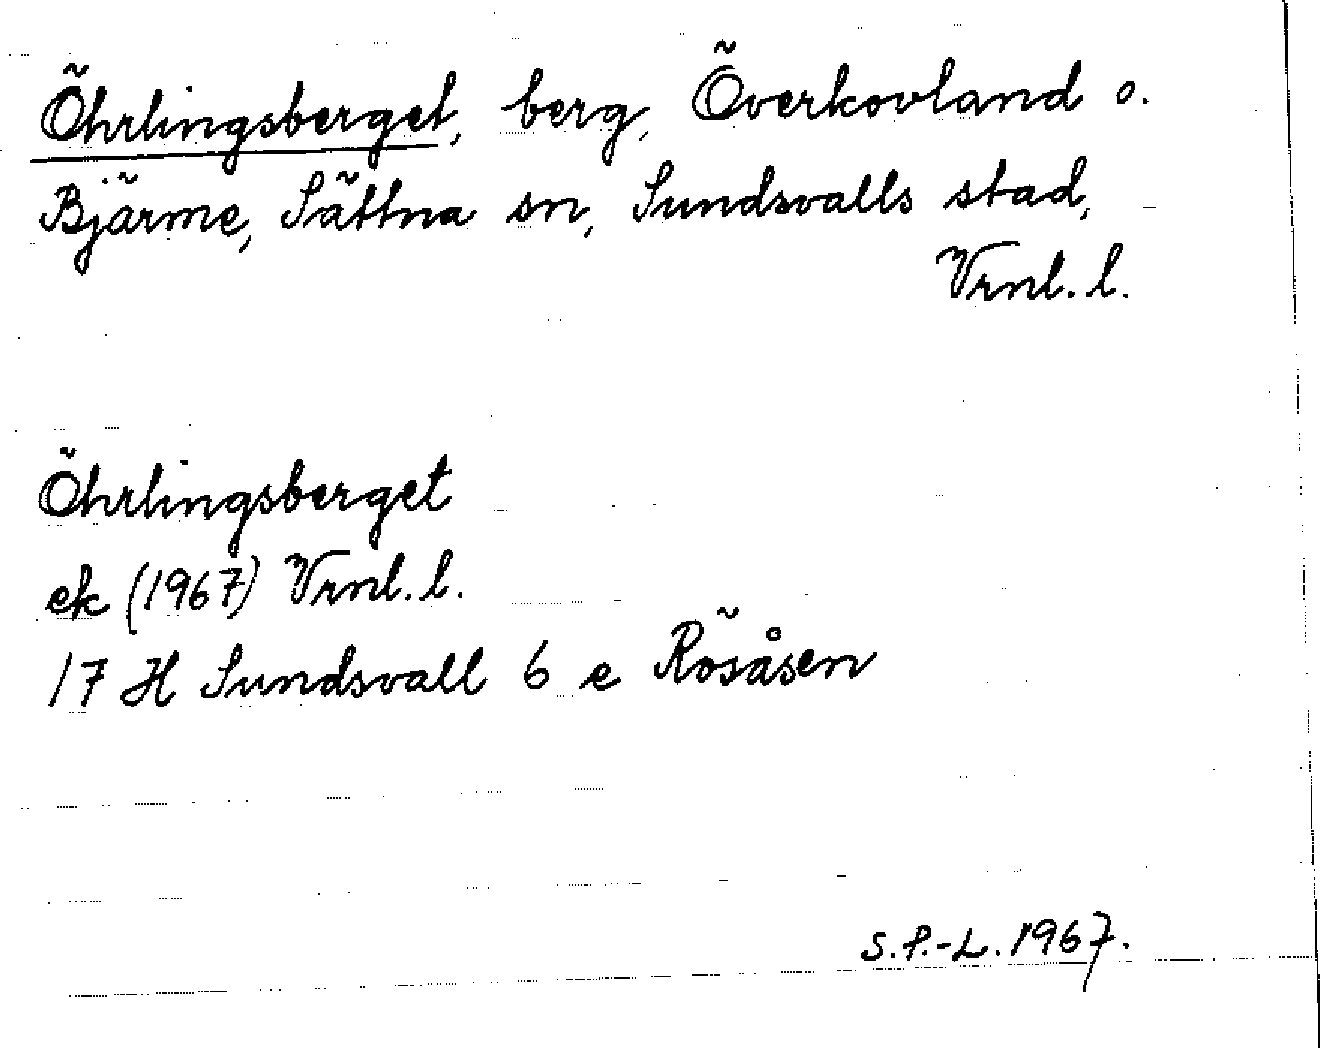 Öhrlingsberget, berg, Överkovland o.
Bjärme, Sättna sn, Sundsvalls stad,
Vrnl. l.
Öhrlingsberget
ek (1967) Vrnl. l.
17 H Sundsvall 6 e Rösåsen
S.P.-L. 1967.